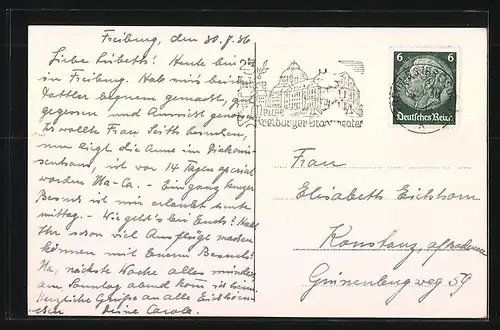 Freiburg, den 30.8.36
Liebe Lisbeth! Heute bin ich
in Freiburg. Hab mir's beim
Dattler bequem gemacht, gut
gegessen und Aussicht genossen.
Ich wollte Frau Seith besuchen,
nun liegt die Arme im Diakonis-
senhaus, ist vor 14 Tagen operiert
worden Ma-Ca. - Ein ganz kurzer
Besuch ist mir erlaubt heute
mittag. - Wie geht's bei Euch? Habt
Ihr schon viel Ausflüge machen
können mit Eurem Besuch?
Na, nächste Woche alles mündlich,
am Sonntag abend kom ich heim.
Herzliche Grüße an alle Eichhörn-
chen Deine Carola.
Freiburger Stadttheater
6 6
Deutsches Reich
Frau
Elisabeth Eichhorn
Konstanz, a/Bodensee
Grünenbergweg 59